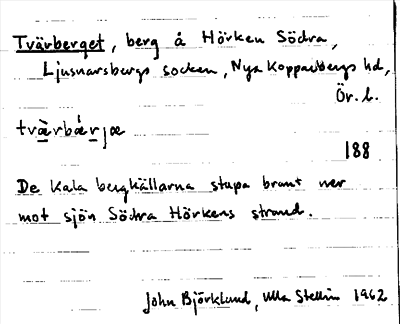 Tvärberget, berg å Hörken Södra,
Ljusnarsbergs socken, Nya Kopparbergs hd,
Ör. l.
tvæ̀rbǽrjæ
188
De kala bergkällarna stupa brant ner
mot sjön Södra Hörkens strand.
John Björklund, Ulla Stellin 1962